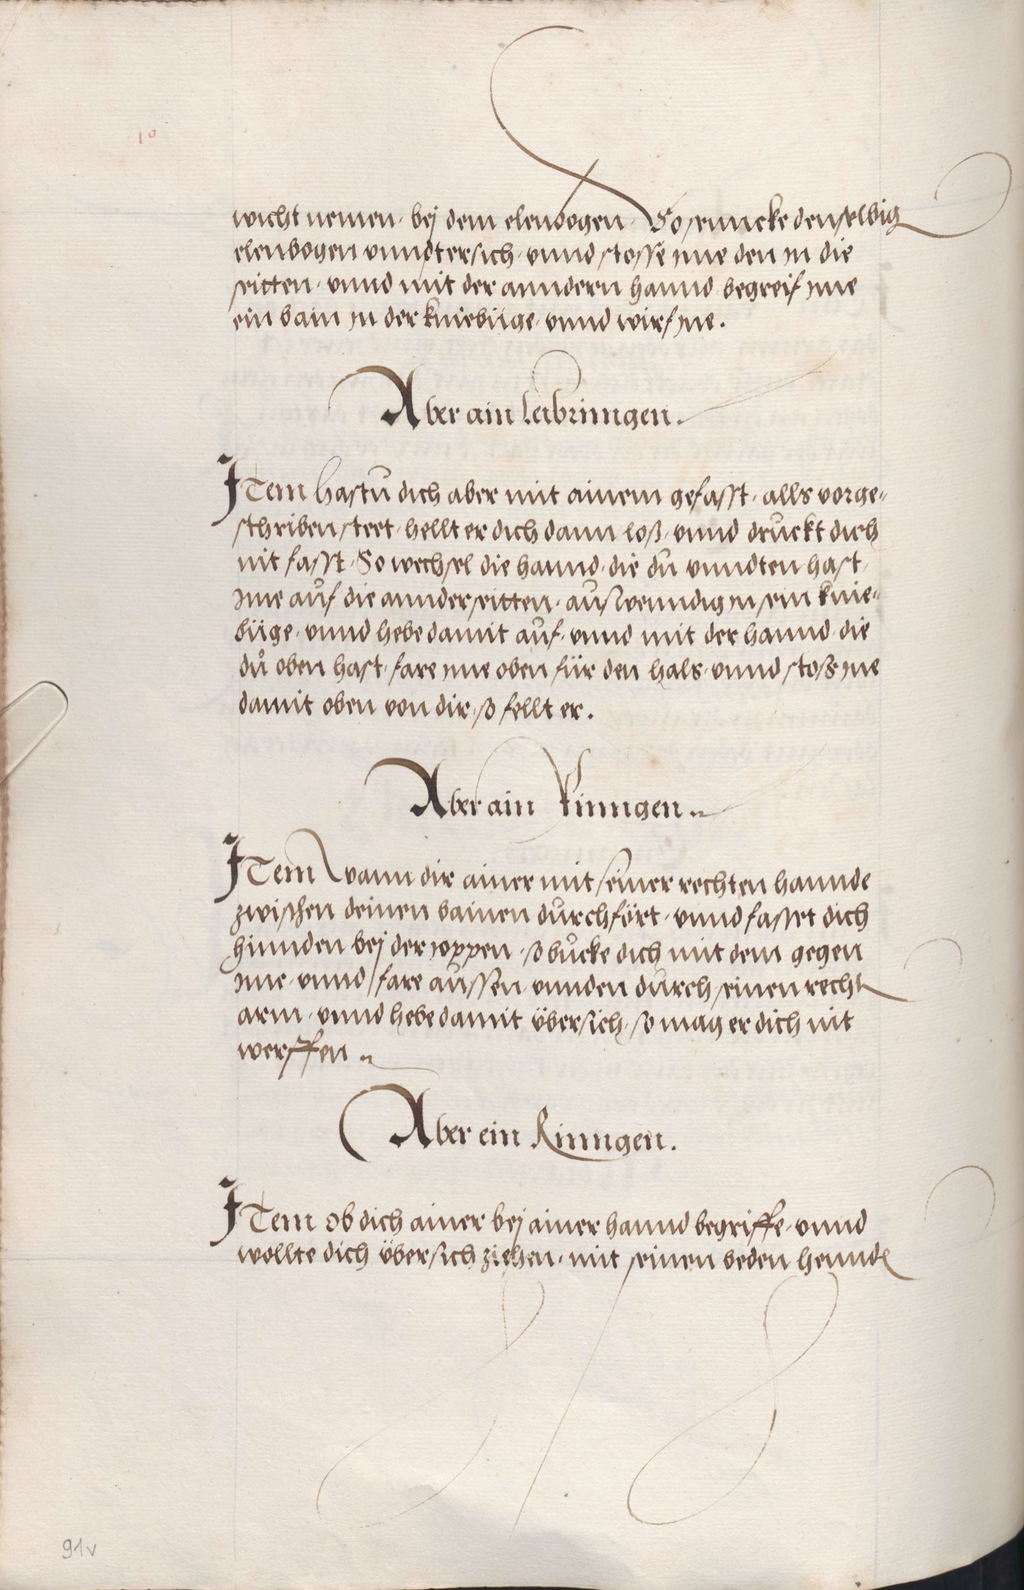 10
wicht nemen, bej dem elenbogen, So senncke denselbig
elenbogen vnndtersich, vnnd stosse jme den jn die
seitten, vnnd mit der anndern hannd begreif jme
ein bain jn der kniebüge, vnnd wirf jne.
Aber ain leibrinngen.
ITem hastu dich aber mit ainem gefasst, alls vorge-
schriben steet, hellt er dich dann loß, vnnd druckt dich
nit fasst, So wechsel die hannd, die du vnndten hast,
jme auf die annder seitten, außwenndig jn sein knie-
büge, vnnd hebe damit auf, vnnd mit der hannd, die
du oben hast, fare jme oben für den hals, vnnd stoß jne
damit oben von dir, so fellt er.
Aber ain Rinngen.
ITem wann dir ainer mit seiner rechten hannde
zwischen deinen bainen durchfört, vnnd fasset dich
hinnden bej der joppen, so bucke dich mit dem gegen
jme, vnnd fare aussen, vnnden durch seinen recht
arm, vnnd hebe damit übersich, so mag er dich nit
werffen.
Aber ein Rinngen.
ITem ob dich ainer bej ainer hannd begriffe, vnnd
wollte dich übersich ziehen, mit seinen beden hennde
91v